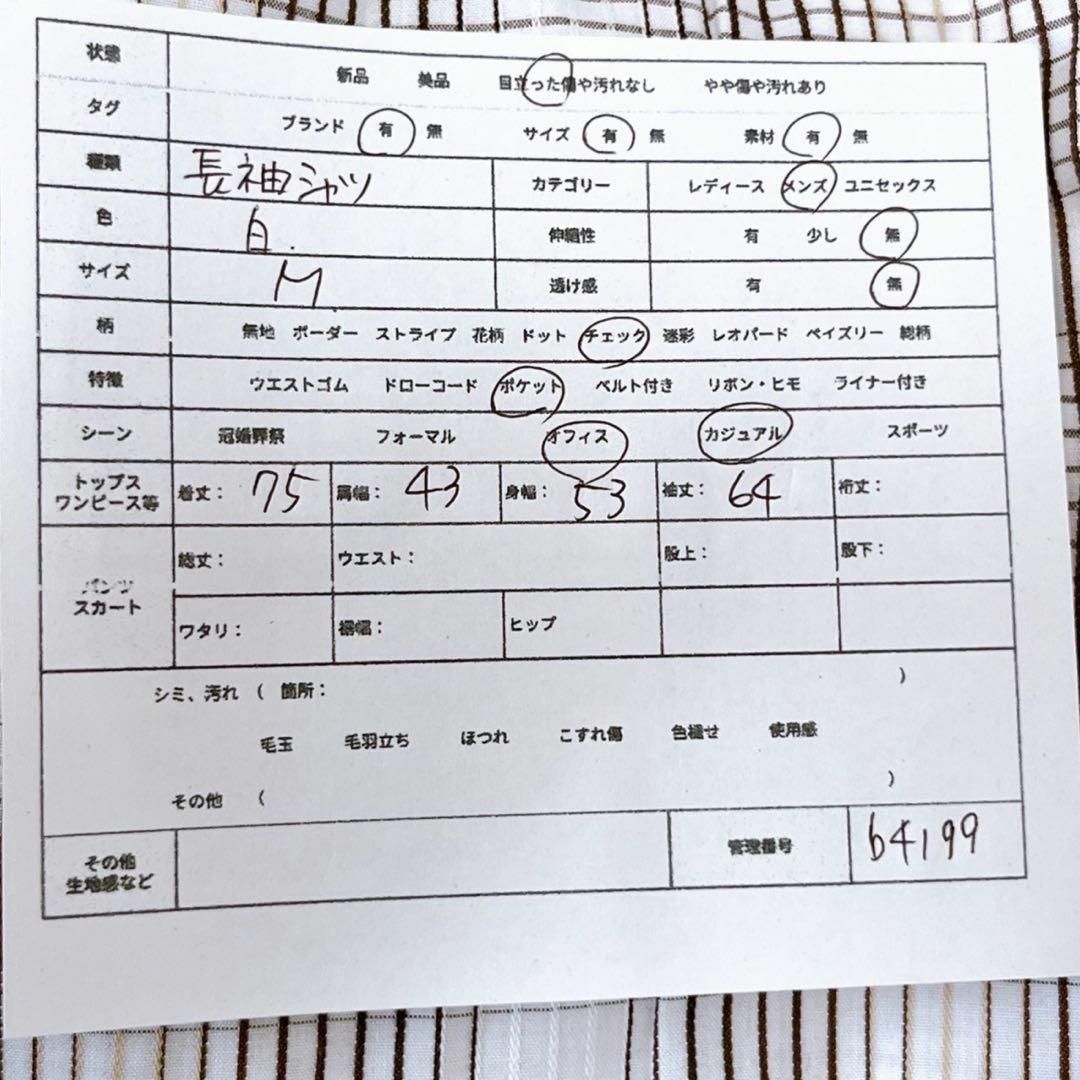 状態 新品 美品 目立った傷や汚れなし やや傷や汚れあり
タグ ブランド 有 無 サイズ 有 無 素材 有 無
種類 長袖シャツ カテゴリー レディース メンズ ユニセックス
色 白. 伸縮性 有 少し 無
サイズ M 透け感 有 無
柄 無地 ボーダー ストライプ 花柄 ドット チェック 迷彩 レオパード ペイズリー 総柄
特徴 ウエストゴム ドローコード ポケット ベルト付き リボン・ヒモ ライナー付き
シーン 冠婚葬祭 フォーマル オフィス カジュアル スポーツ
トップス
ワンピース等 着丈: 75 肩幅: 43 身幅: 53 袖丈: 64 裄丈:
パンツ
スカート 総丈: ウエスト: 股上: 股下:
ワタリ: 裾幅: ヒップ
シミ、汚れ ( 箇所: )
毛玉 毛羽立ち ほつれ こすれ傷 色褪せ 使用感
その他 ( )
その他
生地感など 管理番号 64199